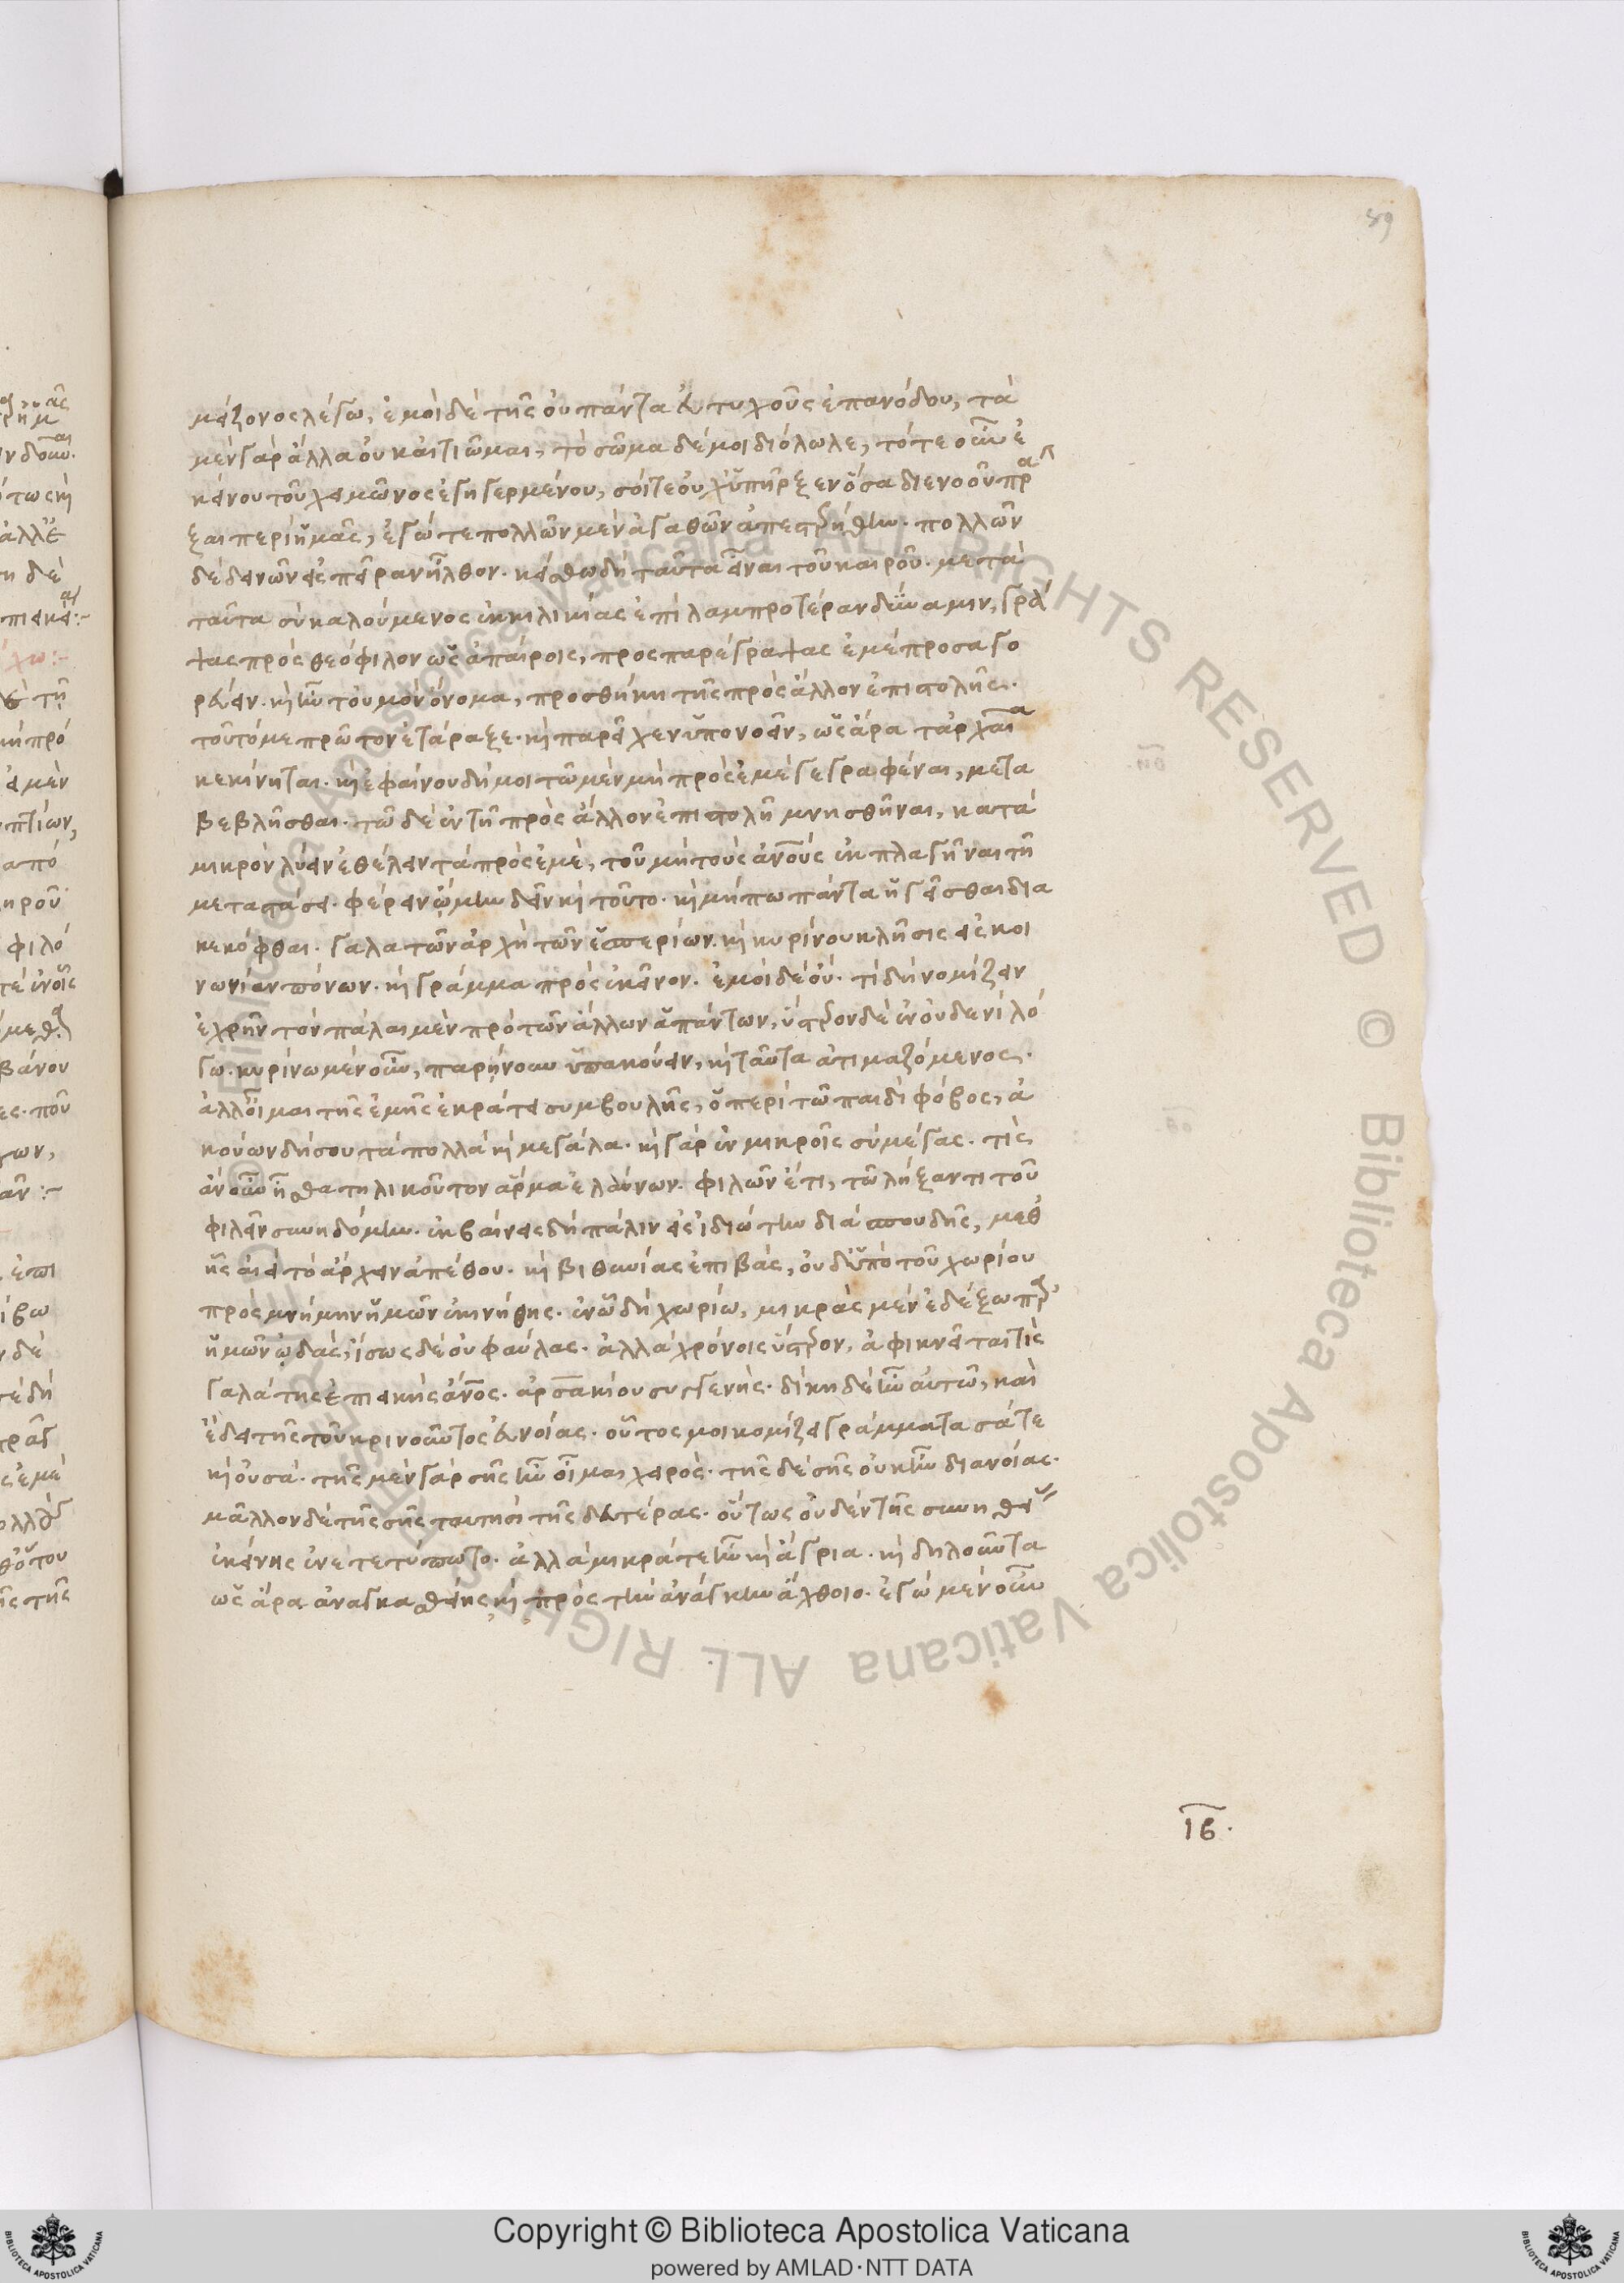 89
μείζονος λέγω, ἐμοὶ δὲ τῆς οὐ πάντα εὐτυχοῦς ἐπανόδου, τὰ
μὲν γὰρ ἄλλα οὐκ αἰτιῶμαι, τὸ σῶμα δέ μοι διόλωλε, τότε οὖν ἐ
κείνου τοῦ χειμῶνος ἐγηγερμένου, σοί τε οὐχ ὑπῆρξεν ὅσα διενοοῦ πρα
ξαι περὶ ἡμᾶς, ἐγώ τε πολλῶν μὲν ἀγαθῶν ἀπεστερήθην. πολλῶν
δὲ δεινῶν εἰς πεῖραν ἦλθον. κείσθω δὴ ταῦτα εἶναι τοῦ καιροῦ. μετὰ
ταῦτα σὺ καλούμενος ἐκ κιλικίας ἐπὶ λαμπροτέραν δύναμιν, γρά
ψας πρὸς θεόφιλον ὡς ἀπαίροις, προσπαρέγραψας ἐμὲ προσαγο
ρεύειν. κὶ ἦν τοὐμὸν ὄνομα, προσθήκη τῆς πρὸς ἄλλον ἐπιστολῆς.
τοῦτό με πρῶτον ἐτάραξε. κὶ παρεῖχεν ὑπονοεῖν, ὡς ἄρα τἀρχαῖα
κεκίνηται. κὶ ἐφαίνου δή μοι τῶ μὲν μὴ πρὸς ἐμὲ γεγραφέναι, μετα
βεβλῆσθαι. τῶ δὲ ἐν τῆ πρὸς ἄλλον ἐπιστολῆ μνησθῆναι, κατὰ
μικρὸν λύειν ἐθέλειν τὰ πρὸς ἐμέ, τοῦ μὴ τοὺς ἀνους ἐκπλαγῆναι τῆ
μεταστάσει. φέρειν ᾤμην δεῖν κὶ τοῦτο. κὶ μήπω πάντα ἡγεῖσθαι δια
κεκόφθαι. γαλατῶν ἀρχὴ τῶν ἑσπερίων. κὶ κυρίνου κλῆσις εἰς κοι
νωνίαν πόνων. κὶ γράμμα πρὸς ἐκεῖνον. ἐμοὶ δὲ οὔ. τί δὴ νομίζειν
ἐχρῆν τὸν πάλαι μὲν πρὸ τῶν ἄλλων ἁπάντων, ὕστερον δὲ ἐν οὐδενὶ λό
γω. κυρίνω μὲν οὖν, παρῄνουν ὑπακούειν, κὶ ταῦτα ἀτιμαζόμενος.
ἀλλ' οἶμαι τῆς ἐμῆς ἐκράτει συμβουλῆς, ὁ περὶ τῶ παιδὶ φόβος, ἀ
κούων δή σου τὰ πολλὰ κὶ μεγάλα. κὶ γὰρ ἐν μικροῖς σὺ μέγας. τίς
ἂν οὖν ἦσθα τηλικοῦτον ἅρμα ἐλαύνων. φιλῶν ἔτι, τῶ λήξαντι τοῦ
φιλεῖν συνηδόμην. ἐκβαίνεις δὴ πάλιν εἰς ἰδιώτην διὰ σπουδῆς, μεθ'
ἧς ἀεὶ τὸ ἄρχειν ἀπέθου. κὶ βιθυνίας ἐπιβάς, οὐδ' ὑπὸ τοῦ χωρίου
πρὸς μνήμην ἡμῶν ἐκινήθης. ἐν ὧ δὴ χωρίω, μικρὰς μὲν ἐδέξω παρ'
ἡμῶν ᾠδάς, ἴσως δὲ οὐ φαύλας. ἀλλὰ χρόνοις ὕστερον, ἀφικνεῖταί τις
γαλάτης ἐπιεικὴς ἀνος. ἀρσακίου συγγενής. δίκη δὲ ἦν αὐτῶ, καὶ
ἔδει τῆς τοῦ κρινοῦντος εὐνοίας. οὗτός μοι κομίζει γράμματα σά τε
κὶ οὐ σά. τῆς μὲν γὰρ σῆς ἦν οἶμαι χειρός. τῆς δὲ σῆς οὐκ ἦν διανοίας.
μᾶλλον δὲ τῆς σῆς ταυτησὶ τῆς δευτέρας. οὕτως οὐδὲν τῆς συνηθείας
ἐκείνης ἐνετετύπωτο. ἀλλὰ μικρά τε ἦν κὶ ἄγρια. κὶ δηλοῦντα
ὡς ἄρα ἀναγκασθείης κὶ πρὸς τὴν ἀνάγκην ἄχθοιο. ἐγὼ μὲν οὖν
ιβ.
Copyright © Biblioteca Apostolica Vaticana
powered by AMLAD·NTT DATA